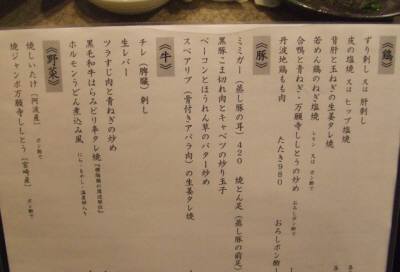 《鶏》
ずり刺し 又は 肝刺し
皮の塩焼 又は ヒップ塩焼
背肝と玉ねぎの生姜タレ焼
若めん鶏のねぎ塩焼 レモン 又は ポン酢で
合鴨と青ねぎ・万願寺ししとうの炒め おろしポン酢で
丹波地鶏もも肉 たたき980 おろしポン酢
《豚》
ミミガー（蒸し豚の耳）420 焼とん足（蒸し豚の前足）
黒豚こま切れ肉とキャベツの炒り玉子
ベーコンとほうれん草のバター炒め
スペアリブ（骨付きアバラ肉）の生姜タレ焼
《牛》
チレ（脾臓）刺し
生レバー
ツラすじ肉と青ねぎの炒め
黒毛和牛はらみピリ辛タレ焼
ホルモンうどん煮込み風 にら・もやし・温泉卵入り
《野菜》
焼しいたけ［阿波産］ ポン酢で
焼ジャンボ万願寺ししとう［宮崎産］ ポン酢で